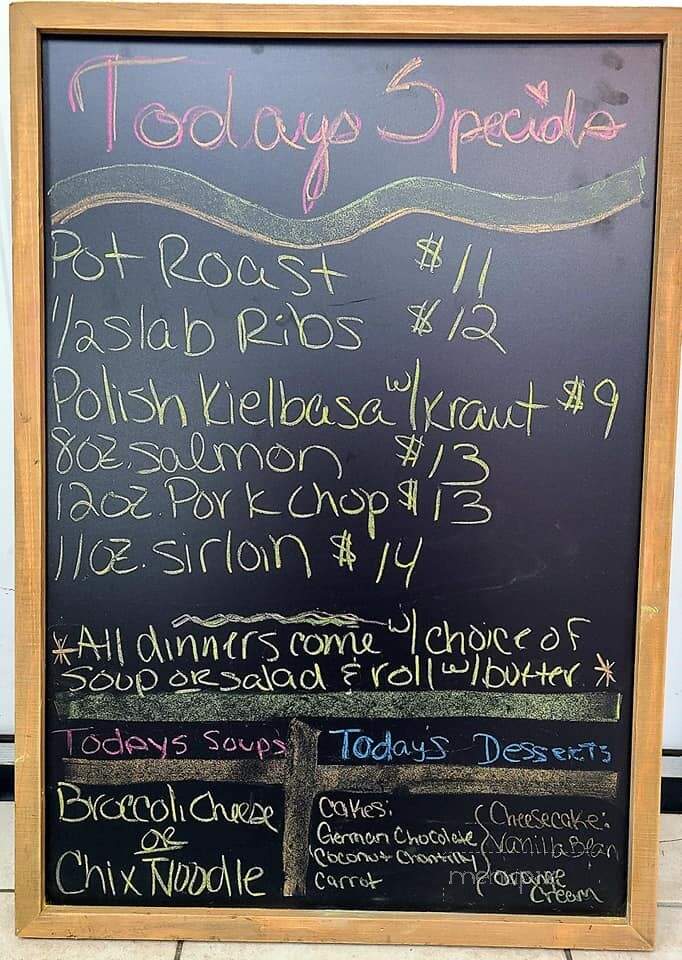 Todays Specials
Pot Roast $11
1/2 slab Ribs $12
Polish Kielbasa w/kraut $9
8oz. salmon $13
12oz. Pork chop $13
11oz. sirloin $14
*All dinners come w/choice of
soup or salad & roll w/butter *
Todays Soups
Broccoli Cheese
or
Chix Noodle
Today's Desserts
Cakes:
German Chocolate
Coconut Chantilly
Carrot
Cheesecake:
Vanilla Bean
orange
Cream